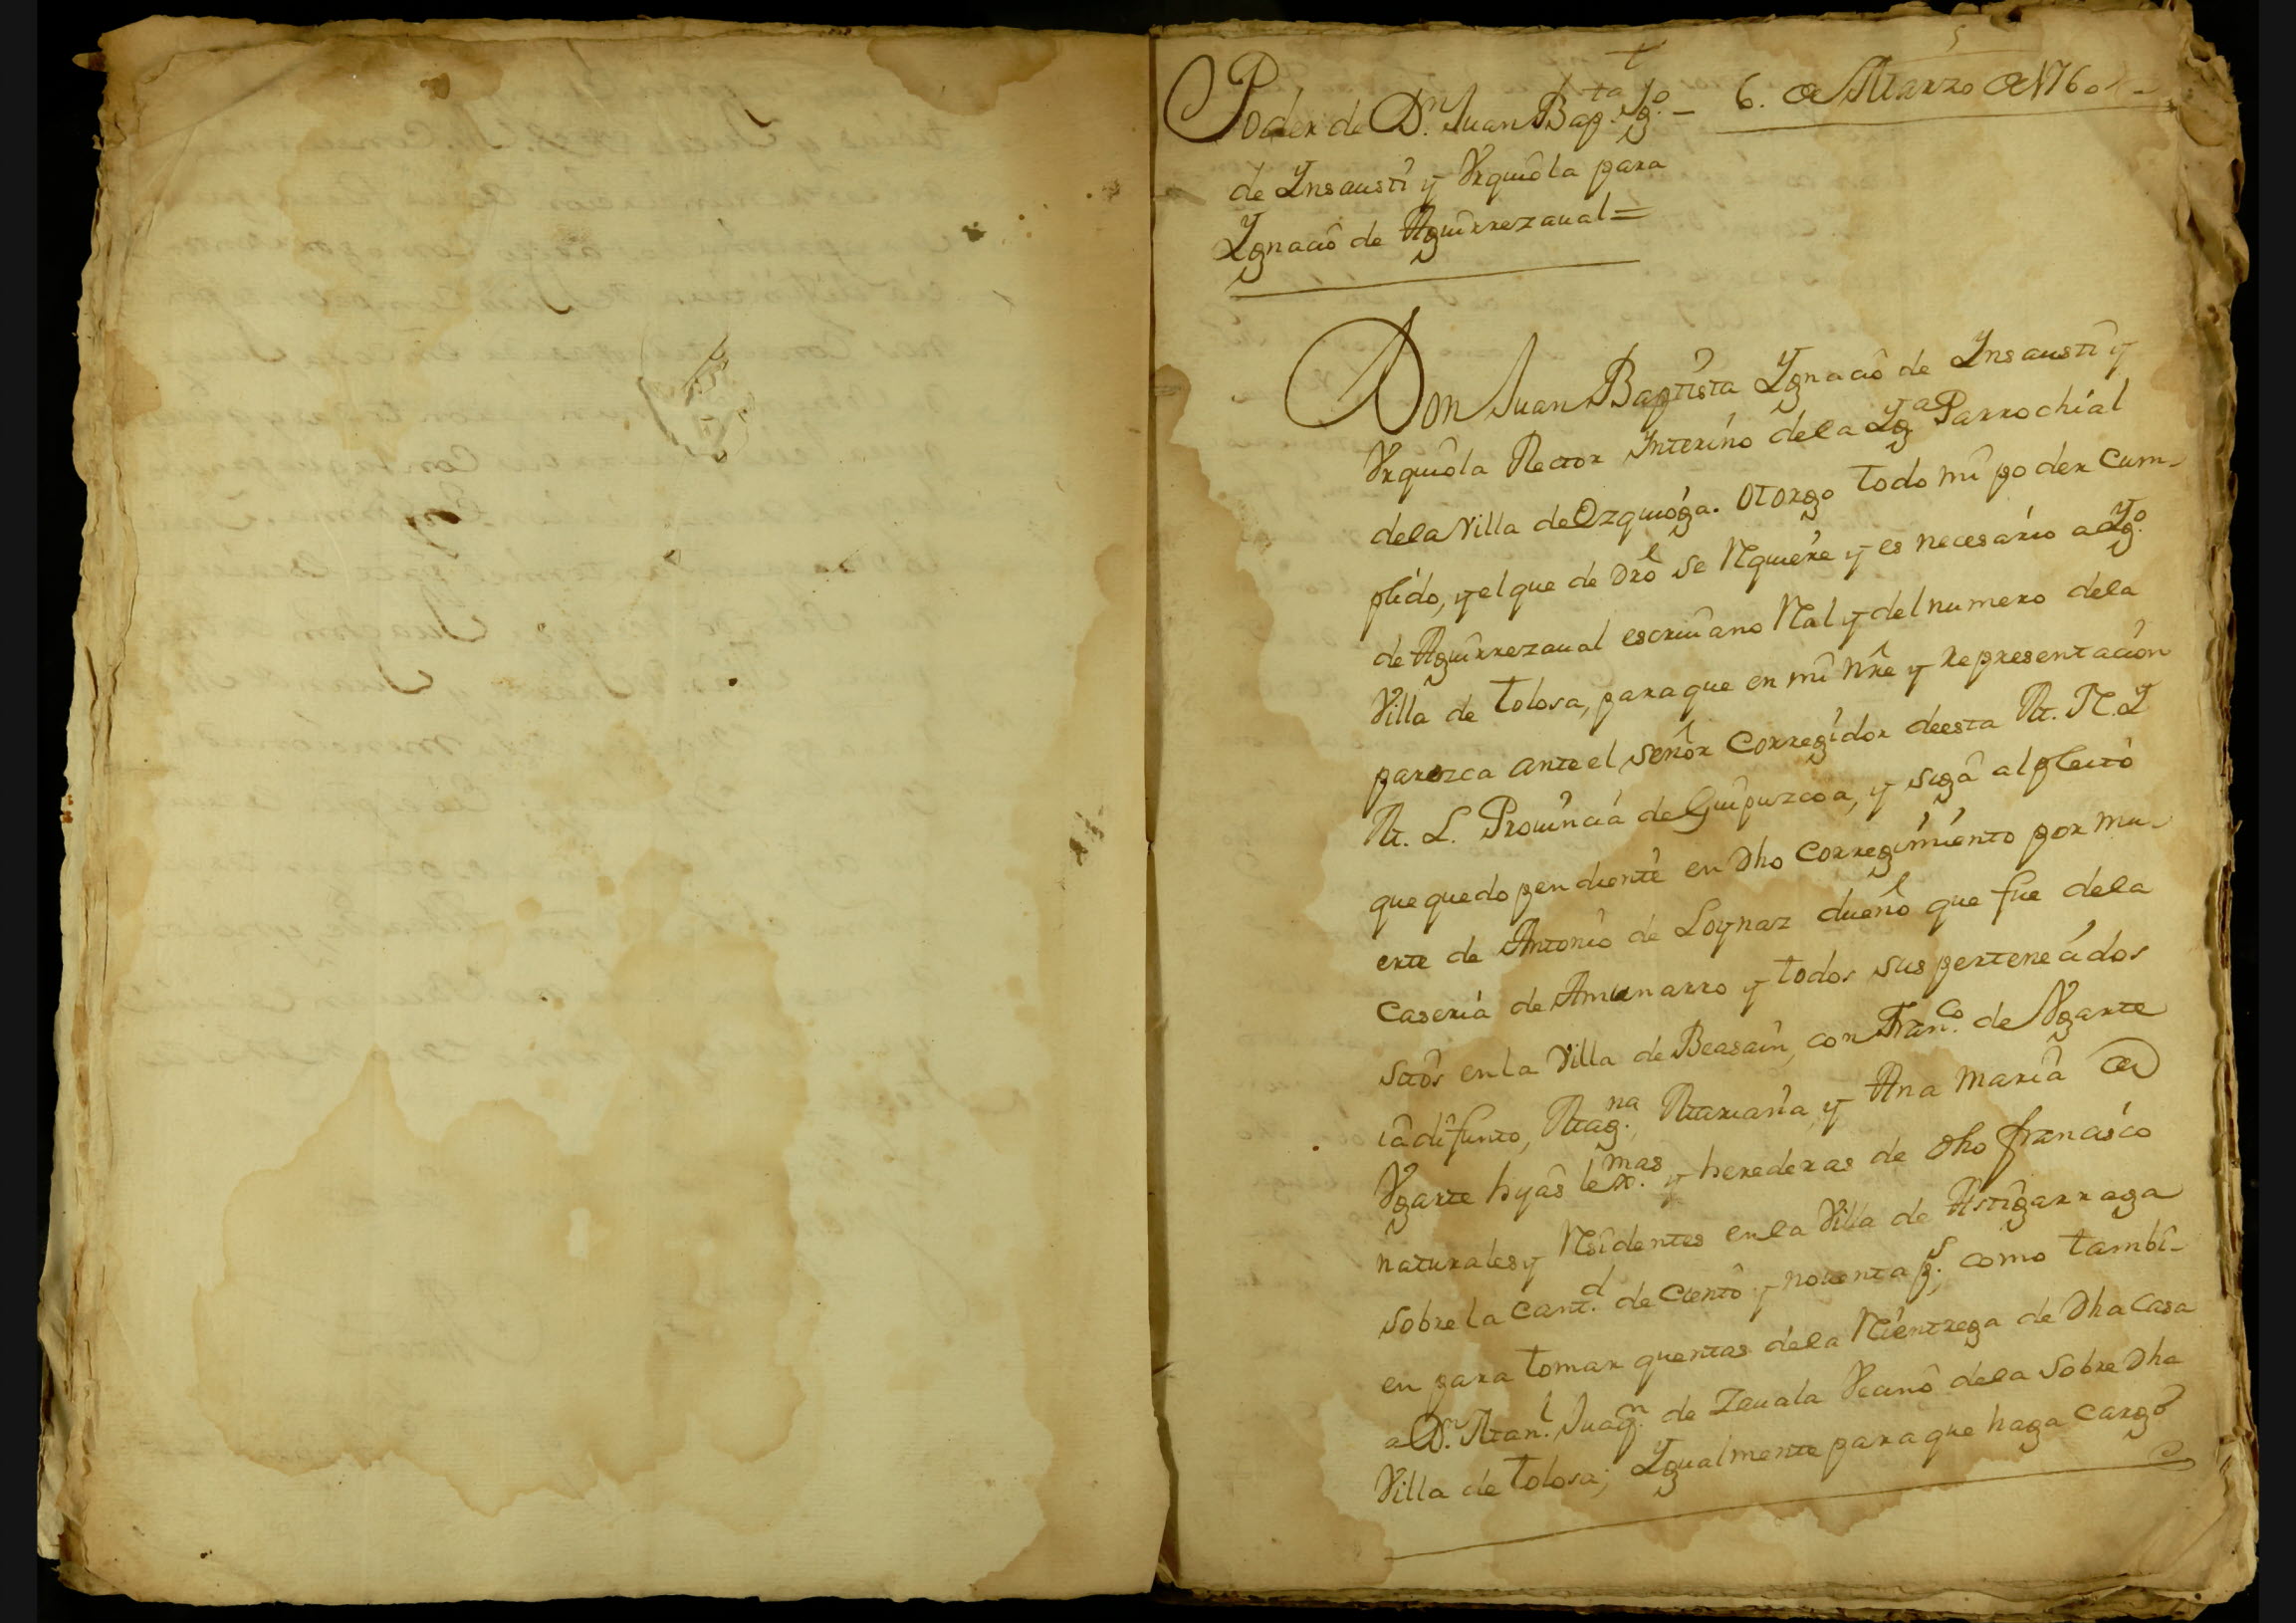 Poder de D.n Juan Bap.ta Yg.o – 6. de Marzo de 1760
de Ynsausti y Vrquiola para
Ygnacio de Aguirrezaual=
Don Juan Baptista Ygnacio de Ynsausti y
Vrquiola Rector Ynterino de la Yg.a Parrochial
de la Villa de Ozquioga. Otorgo todo mi poder cum-
plido, y el que de dro se Requiere y es necesario a Yg.o
de Aguirrezaual escriuano Real y del numero de la
Villa de Tolosa, para que en mi nre y representacion
parezca ante el señor Corregidor de esta M. N. Y
M. L. Prouincia de Guipuzcoa, y siga al pleito
que quedo pendiente en dho corregimiento por mu-
erte de Antonio de Loynaz dueño que fue de la
Caseria de Amunarro y todos sus perteneciados
sitos en la Villa de Beasain, con Fran.co de Vgarte
ia difunto, Mag.na Mariana, y Ana Maria de
Vgarte hijas lex.mas y herederas de dho francisco
naturales y Residentes en la Villa de Astigarraga
sobre la cant.d de ciento y nouenta p.s, como tambi-
en para tomar quentas de la Reientrega de dha casa
a D.n Man.l Juaq.n de Zauala Vecino de la sobre dha
Villa de Tolosa; Ygualmente para que haga cargo